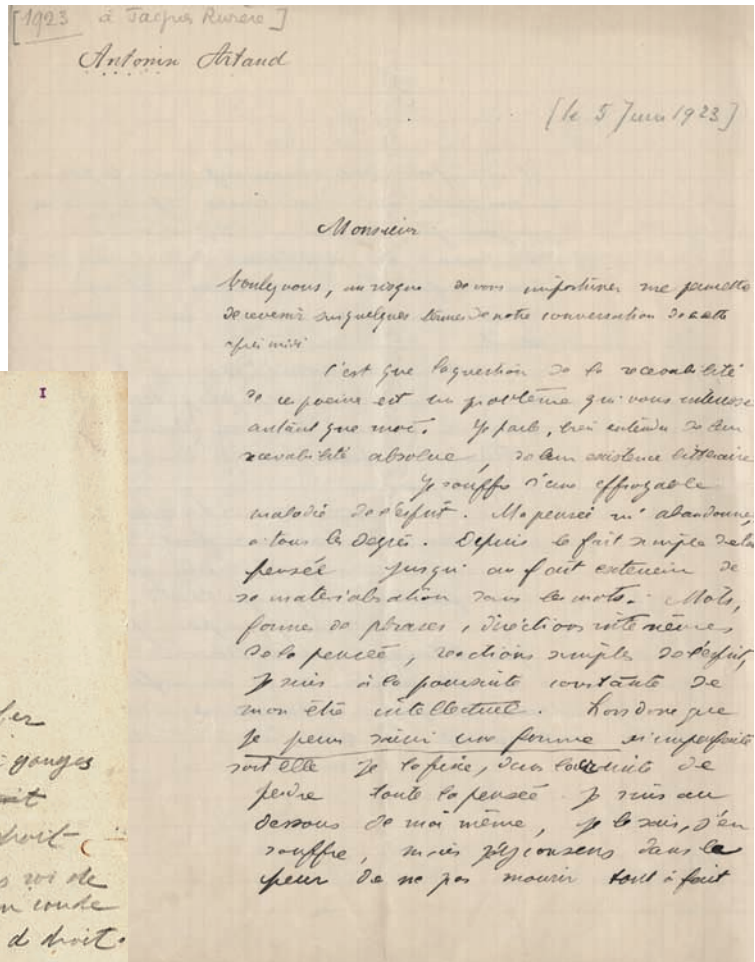 [1923 à Jacques Rivière]
Antonin Artaud
[le 5 Juin 1923]
Monsieur
Voulez vous, au risque de vous importuner me permettre
de revenir sur quelques termes de notre conversation de cette
après midi
C'est que la question de la recevabilité
de ce poème est un problème qui vous intéresse
autant que moi. Je parle, bien entendu de leur
recevabilité absolue, de leur existence littéraire
Je souffre d'une effroyable
maladie de l'esprit. Ma pensée m'abandonne,
à tous les degrés. Depuis le fait simple de la
pensée jusqu'au fait extérieur de
sa matérialisation dans les mots. Mots,
formes de phrases, directions intérieures
de la pensée, réactions simples de l'esprit,
je suis à la poursuite constante de
mon être intellectuel. Lors donc que
je peux saisir une forme si imparfaite
soit elle je la fixe, dans la crainte de
perdre toute la pensée. Je suis au
dessous de moi même, je le sais, j'en
souffre, mais j'y consens dans la
peur de ne pas mourir tout à fait
I
gouges
droit
roi de
coude
droit.